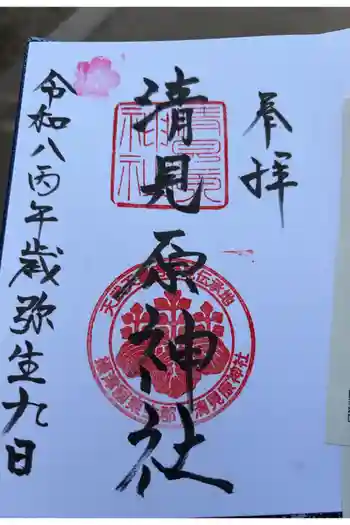 奉拝
清見原神社
令和八丙午歳弥生九日
清見原神社